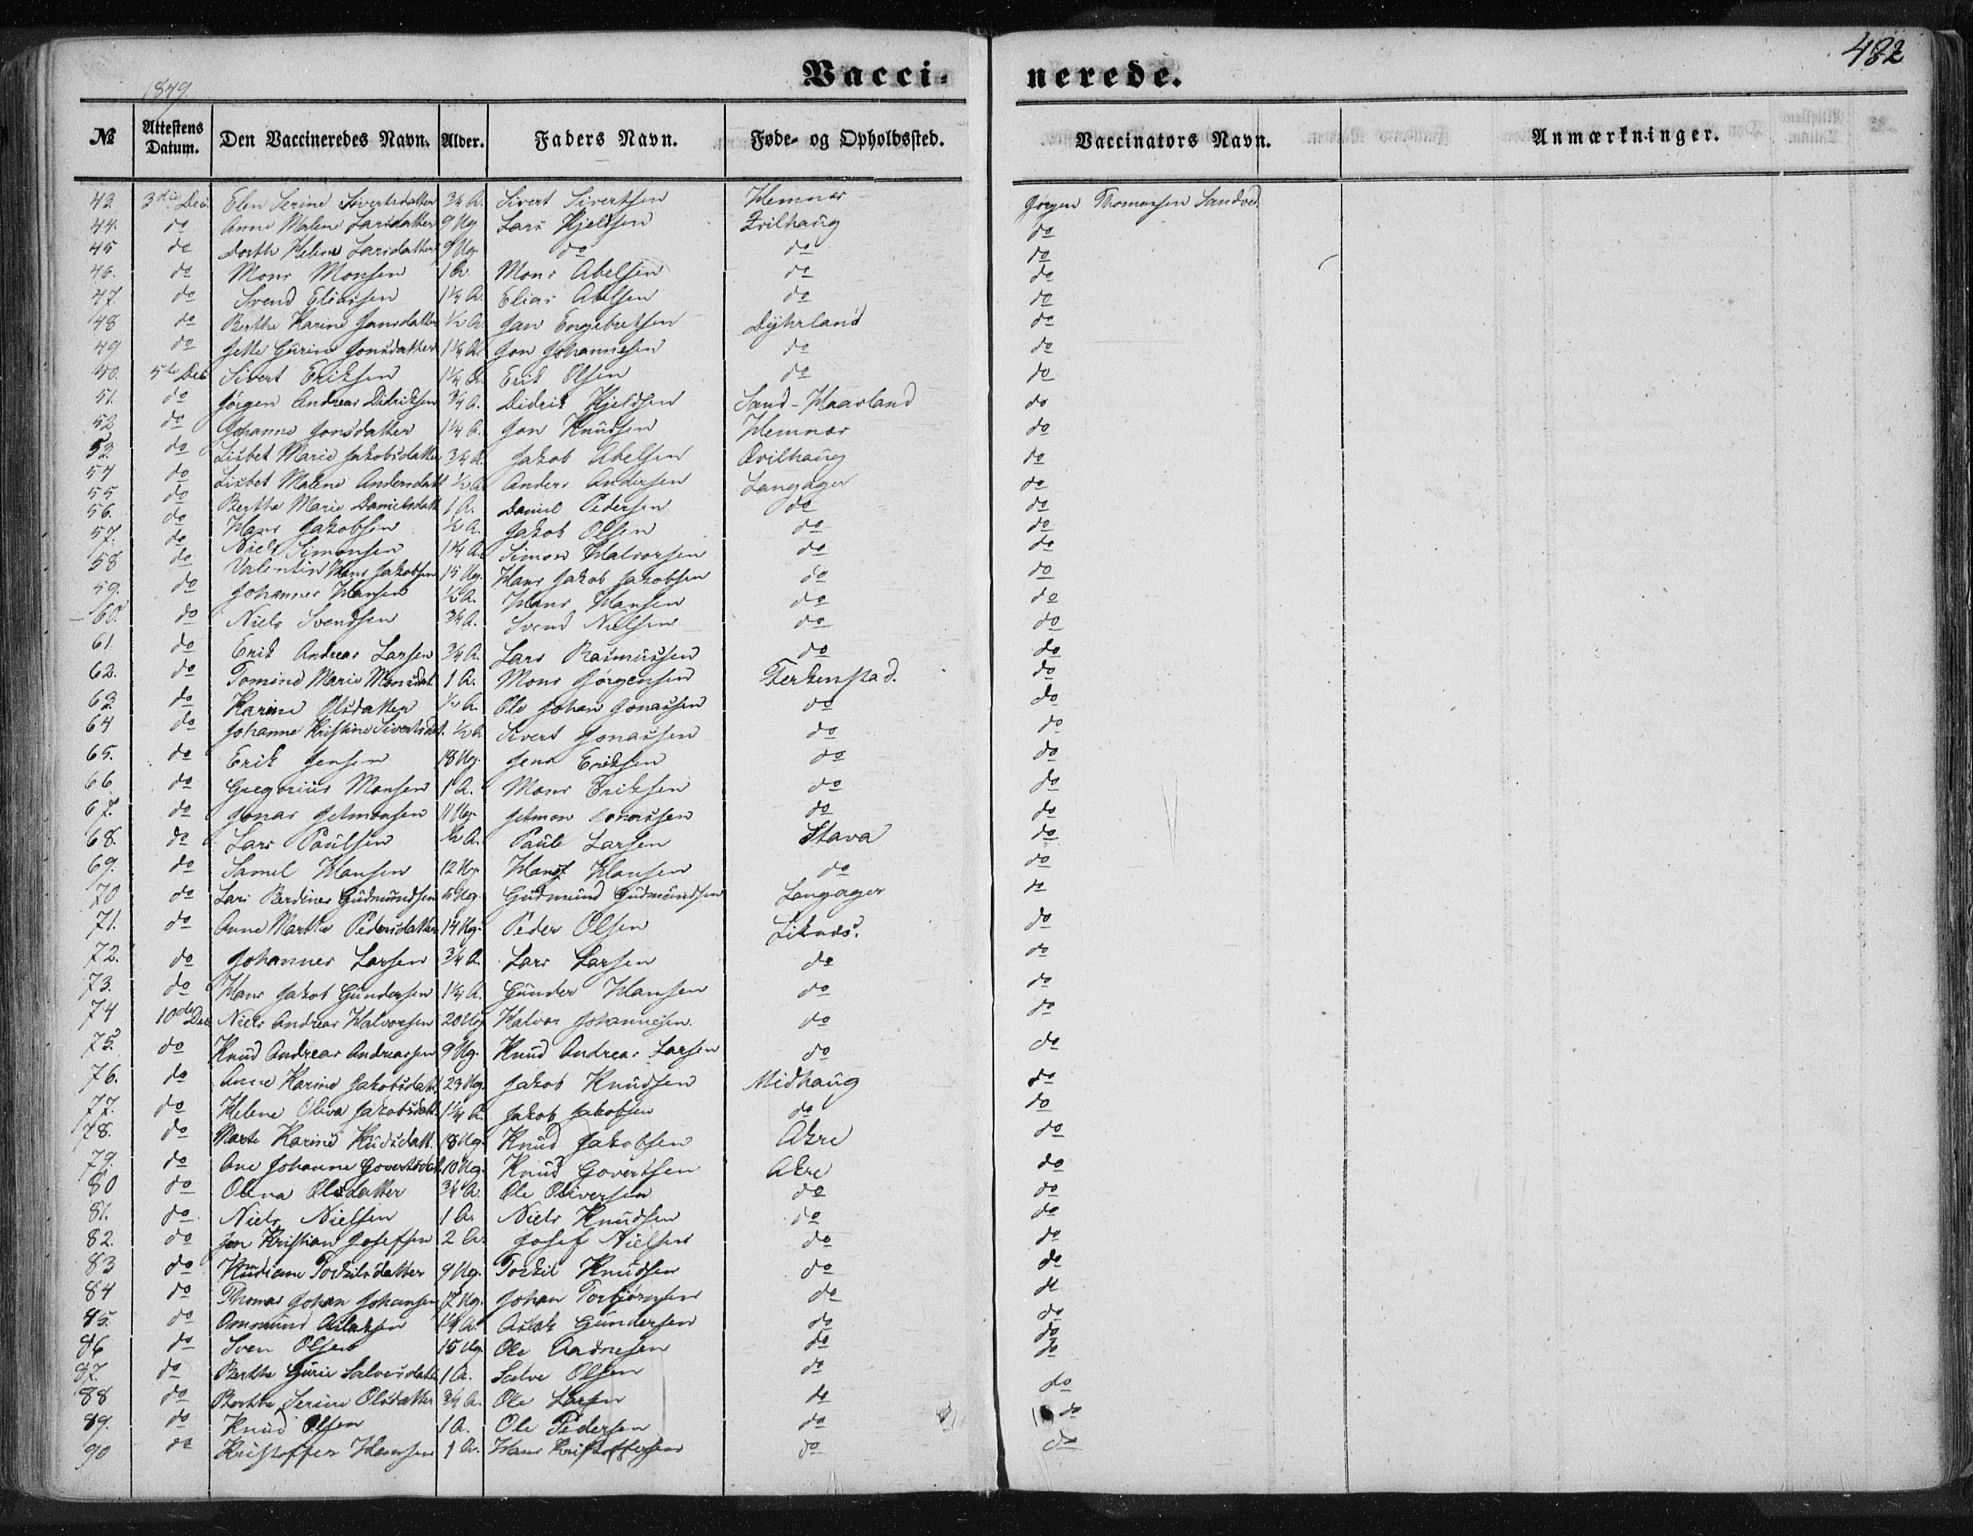 482
1849.
Vacci- nerede.
№ Attestens Datum. Den Vaccineredes Navn. Alder. Faders Navn. Føde- og Opholdssted. Vaccinators Navn. Anmærkninger.
43. 3die Dec. Elen Serine Sivertsdatter 3/4 A. Sivert Sivertsen Hemnes Jørgen Thomassen Sandved
44. do Anne Malene Larsdatter 9 Ug Lars Kjeldsen Qvilhaug do
45 do Dorthe Helene Larsdatter 9 Ug. do do do
46. do Mons Monsen 1 A. Mons Abelsen do do
47. do Svend Eliassen 1 1/4 A. Elias Abelsen do do
48 do Berthe Karine Jansdatter 1/2 A Jan Engebretsen Dyhrland do
49 do Jette Gurine Jonsdatter 1 1/4 A. Jon Johannesen do do
50. 5te Dec Sivert Eriksen 1 1/4 A. Erik Olsen do do
51. do Jørgen Andreas Didriksen 3/4 A. Didrik Kjeldsen Sand-Haavland do
52 do Johanne Jonsdatter 1 1/4 A. Jon Knudsen Hemnes do
53. do Lisbet Marie Jakobsdatter 3/4 A. Jakob Abelsen Qvilhaug do
54 do Lisbet Malene Andersdatt 1/2 A Anders Andersen Langager do
55 do Berthe Marie Danielsdatt 1 A. Daniel Pedersen do do
56. do Hans Jakobsen 1/2 A. Jakob Olsen do do
57. do Niels Simonsen 1 1/4 A. Simon Halvorsen do do
58 do Valentin Hans Jakobsen 15 Ug. Hans Jakob Jakobsen do do
59. do Johannes Hansen 1/2 A. Hans Hansen do do
60. do Niels Svendsen 3/4 A. Svend Nielsen do do
61. do Erik Andreas Larsen 3/4 A. Lars Rasmussen do do
62. do Tomine Marie Monsdat 1 A. Mons Jørgensen Ferkenstad. do
63 do Karine Olsdatter 1/2 A. Ole Johan Jonassen do do
64 do Johanne Kristine Sivertsdat. 1/2 A Sivert Jonassen do do
65. do Erik Jensen 18 Ug. Jens Eriksen do do
66 do Gregorius Monsen 1 A. Mons Eriksen do do
67. do Jonas Jetmonsen 11 Ug. Jetmon Jonassen do do
68. do Lars Paulsen 1/2 A. Paule Larsen Stava do
69. do Samel Hansen 12 Ug. Hans Hansen do do
70 do Lars Berdines Gudmundsen 5 Ug. Gudmund Gudmundsen Langager do
71. do Anne Marthe Pedersdatter 14 Ug. Peder Olsen Liknes. do
72. do Johannes Larsen 3/4 A. Lars Larsen do do
73. do Hans Jakob Gundersen 1 1/4 A. Gunder Hansen do do
74 10de Dec Niels Andreas Halvorsen 20 Ug Halvor Johannesen. do do
75. do Knud Andreas Andreassen 9 Ug. Knud Andreas Larsen do do
76. do Anne Karine Jakobsdatt. 23 Ug. Jakob Knudsen Midhaug do
77. do Helene Oliva Jakobsdatt. 1 1/4 A. Jakob Jakobsen do do
78. do Marte Karine Knudsdatt. 18 Ug. Knud Jakobsen Akre do
79. do Ane Johanne Govertsdat. 10 Ug. Knud Govertsen Akre do
80 do Olena Olsdatter 3/4 A. Ole Oliversen do do
81. do Niels Nielsen 1 A. Niels Knudsen do do
82. do Jon Kristian Josefsen 2 A. Josef Nielsen do do
83 do Torkilsdatter 9 Ug. Torkil Knudsen do do
84 do Thomas Johan Johansen 17 Ug. Johan Torbjørnsen do do
85. do Ommund Aslaksen 1 1/4 A. Aslak Gundersen do do
86 do Sven Olsen 15 Ug. Ole Andresen do do
87. do Berthe Gurie Salvesdatt. 1 A. Salve Olsen do do
88 do Berthe Serine Olsdatter 3/4 A. Ole Larsen do do
89. do Knud Olsen 1 A. Ole Pedersen do do
90 do Kristoffer Hansen 1 A. Hans Kristoffersen do